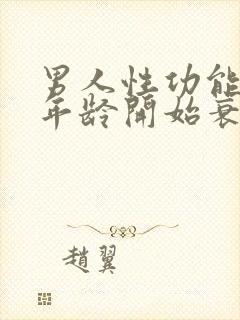 男人性功能
年龄開始衰
趙翼